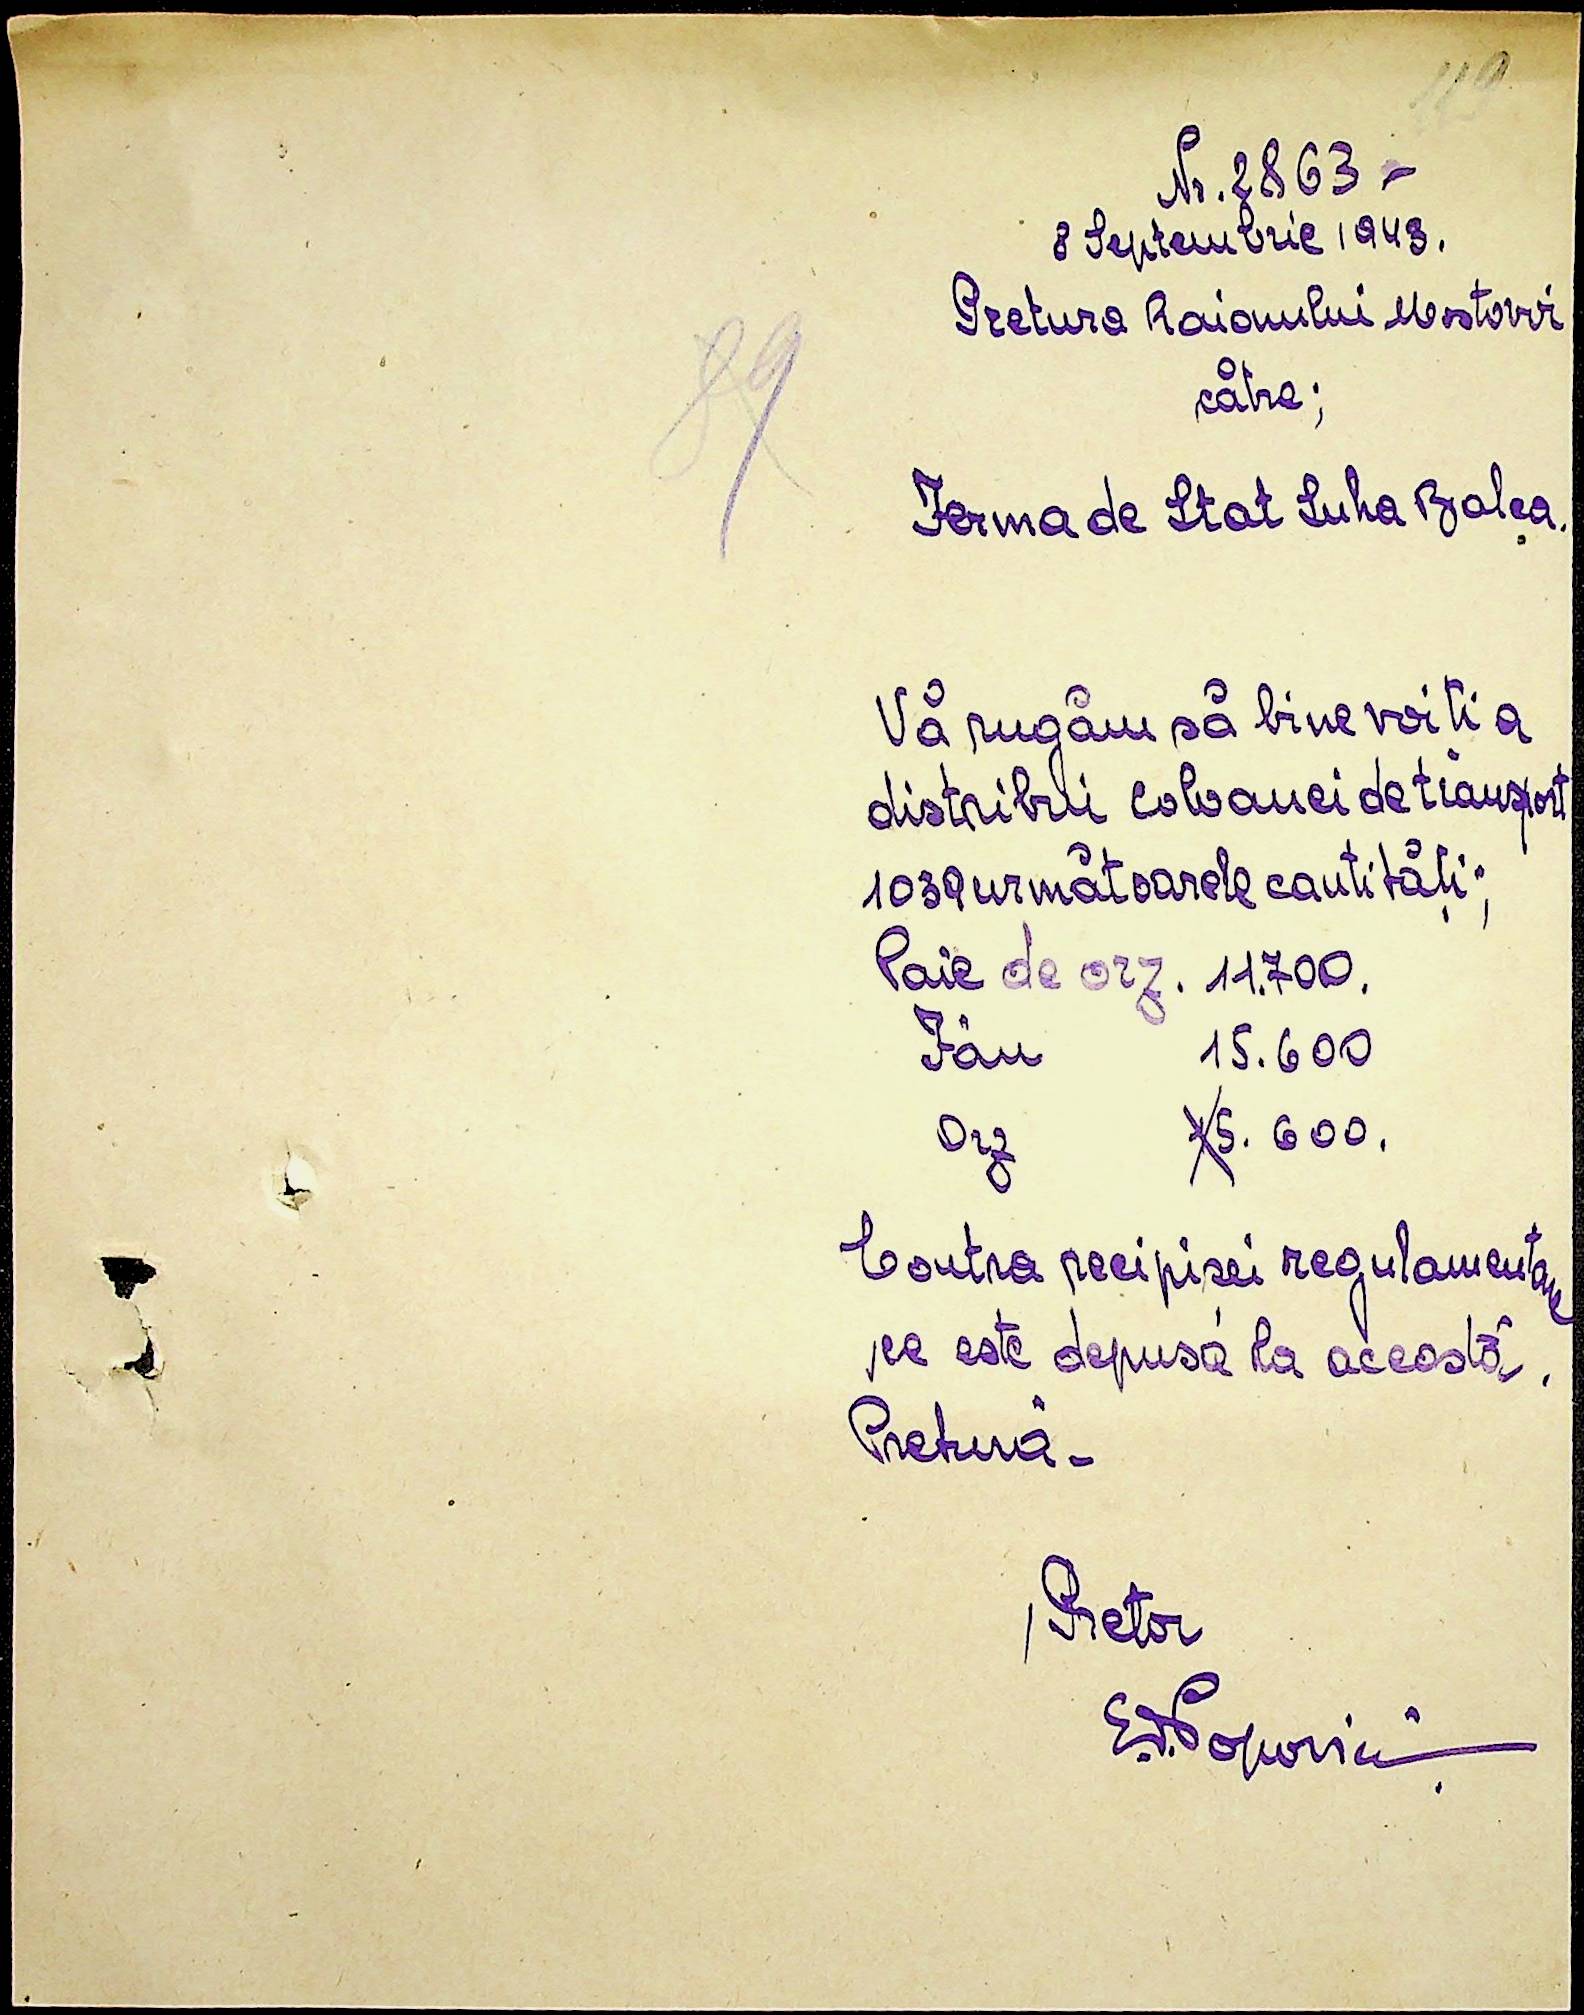 119
Nr. 2863 -
8 Septembrie 1943.
Pretura Raionului Mostovoi
către;
89
Ferma de Stat Suha Balca.
Vă rugăm să bine voiți a
distribui Coloanei de transport
1039 următoarele cantități;
Paie de orz. 11.700.
Fân 15.600
Orz 5.600.
Contra recipisei regulamentare
ce este depusă la această.
Pretură -
/Pretor
E.D. Popovici